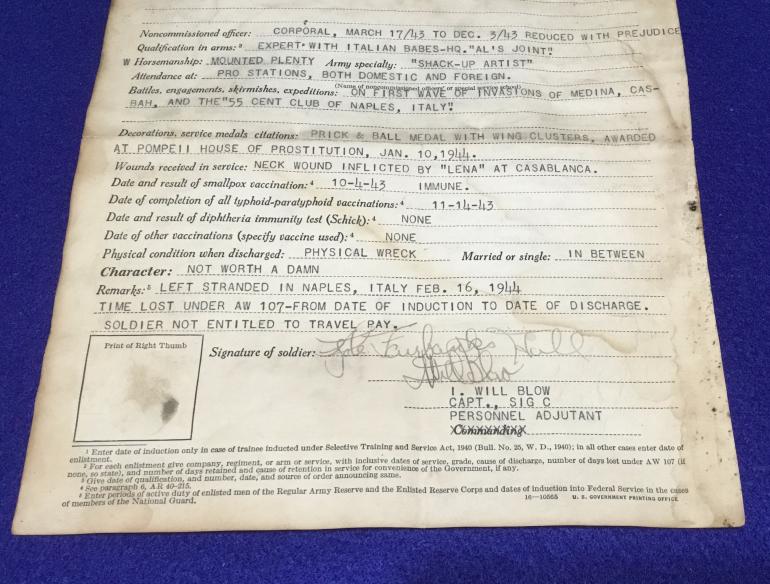 Noncommissioned officer: CORPORAL, MARCH 17/43 TO DEC. 3/43 REDUCED WITH PREJUDICE
Qualification in arms:³ EXPERT WITH ITALIAN BABES-HQ."AL'S JOINT"
W Horsemanship: MOUNTED PLENTY Army specialty: "SHACK-UP ARTIST"
Attendance at: PRO STATIONS, BOTH DOMESTIC AND FOREIGN.
(Name of noncommissioned officers' or special service school)
Battles, engagements, skirmishes, expeditions: ON FIRST WAVE OF INVASIONS OF MEDINA, CAS-
BAH, AND THE"55 CENT CLUB OF NAPLES, ITALY".
Decorations, service medals citations: PRICK & BALL MEDAL WITH WING CLUSTERS, AWARDED
AT POMPEII HOUSE OF PROSTITUTION, JAN. 10,1944.
Wounds received in service: NECK WOUND INFLICTED BY "LENA" AT CASABLANCA.
Date and result of smallpox vaccination:⁴ 10-4-43 IMMUNE.
Date of completion of all typhoid-paratyphoid vaccinations:⁴ 11-14-43
Date and result of diphtheria immunity test (Schick):⁴ NONE
Date of other vaccinations (specify vaccine used):⁴ NONE
Physical condition when discharged: PHYSICAL WRECK Married or single: IN BETWEEN
Character: NOT WORTH A DAMN
Remarks:⁵ LEFT STRANDED IN NAPLES, ITALY FEB. 16, 1944
TIME LOST UNDER AW 107-FROM DATE OF INDUCTION TO DATE OF DISCHARGE.
SOLDIER NOT ENTITLED TO TRAVEL PAY.
Print of Right Thumb
Signature of soldier: Fairbanks Hall
Will Blow
I. WILL BLOW
CAPT., SIG C
PERSONNEL ADJUTANT
Commanding
¹ Enter date of induction only in case of trainee inducted under Selective Training and Service Act, 1940 (Bull. No. 25, W. D., 1940); in all other cases enter date of
enlistment.
² For each enlistment give company, regiment, or arm or service, with inclusive dates of service, grade, cause of discharge, number of days lost under AW 107 (if
none, so state), and number of days retained and cause of retention in service for convenience of the Government, if any.
³ Give date of qualification, and number, date, and source of order announcing same.
⁴ See paragraph 6, AR 40-215.
⁵ Enter periods of active duty of enlisted men of the Regular Army Reserve and the Enlisted Reserve Corps and dates of induction into Federal Service in the cases
of members of the National Guard. 16—10565 U. S. GOVERNMENT PRINTING OFFICE